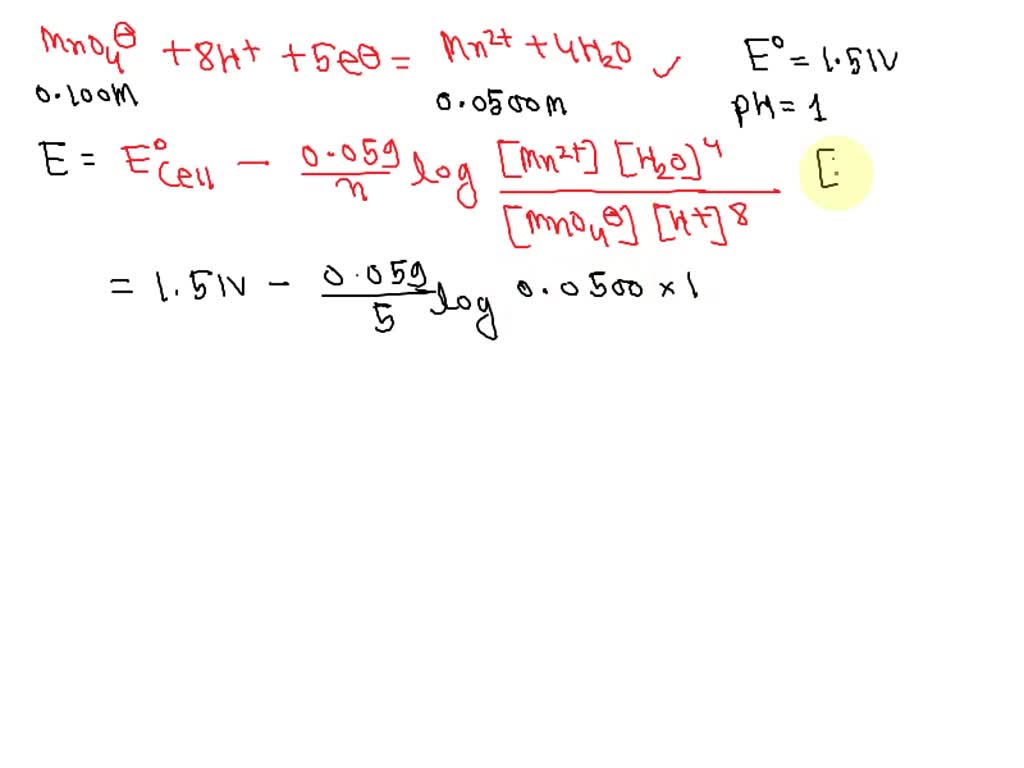 MnO₄⊖ + 8H⁺ + 5e⊖ = Mn²⁺ + 4H₂O ✓ E° = 1.51V
0.100M 0.0500M pH = 1
E = E°cell − 0.059/n log [Mn²⁺] [H₂O]⁴ / [MnO₄⊖] [H⁺]⁸ [
= 1.51V − 0.059/5 log 0.0500 × 1